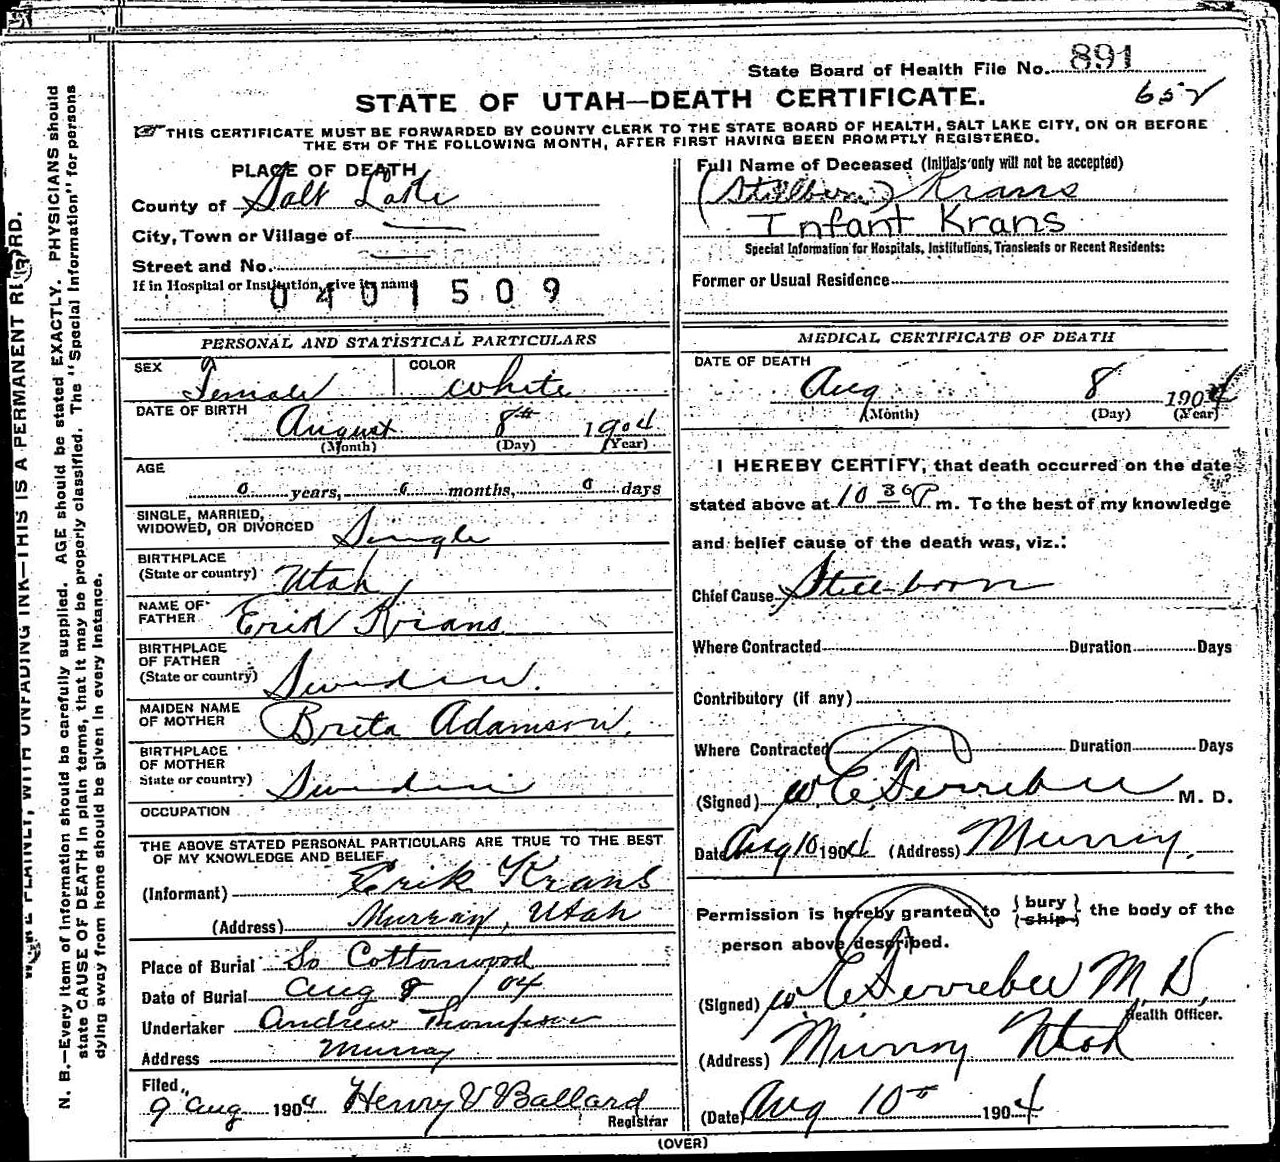 State Board of Health File No. 891
652
STATE OF UTAH—DEATH CERTIFICATE.
THIS CERTIFICATE MUST BE FORWARDED BY COUNTY CLERK TO THE STATE BOARD OF HEALTH, SALT LAKE CITY, ON OR BEFORE
THE 5TH OF THE FOLLOWING MONTH, AFTER FIRST HAVING BEEN PROMPTLY REGISTERED.
PLACE OF DEATH
County of Salt Lake
City, Town or Village of
Street and No.
If in Hospital or Institution, give its name
0401509
PERSONAL AND STATISTICAL PARTICULARS
SEX Female COLOR White
DATE OF BIRTH
August 8th 1904
(Month) (Day) (Year)
AGE
0 years, 0 months, 0 days
SINGLE, MARRIED,
WIDOWED, OR DIVORCED Single
BIRTHPLACE
(State or country) Utah
NAME OF
FATHER Erik Krans
BIRTHPLACE
OF FATHER
(State or country) Sweden.
MAIDEN NAME
OF MOTHER Brita Adamson.
BIRTHPLACE
OF MOTHER
State or country) Sweden
OCCUPATION
THE ABOVE STATED PERSONAL PARTICULARS ARE TRUE TO THE BEST
OF MY KNOWLEDGE AND BELIEF
(Informant) Erik Krans
(Address) Murray, Utah
Place of Burial So Cottonwood
Date of Burial Aug 8 / 04
Undertaker Andrew Thompson
Address Murray
Filed
9 Aug 1904 Henry V Ballard
Registrar
Full Name of Deceased (Initials only will not be accepted)
(Stillborn) Krans
Infant Krans
Special Information for Hospitals, Institutions, Transients or Recent Residents:
Former or Usual Residence
MEDICAL CERTIFICATE OF DEATH
DATE OF DEATH
Aug 8 1904
(Month) (Day) (Year)
I HEREBY CERTIFY, that death occurred on the date
stated above at 10 30 P m. To the best of my knowledge
and belief cause of the death was, viz.:
Chief Cause Still-born
Where Contracted Duration Days
Contributory (if any)
Where Contracted Duration Days
(Signed) W. C. Ferrebee M. D.
Date Aug 10 1904 (Address) Murray.
Permission is hereby granted to {bury
{ship} the body of the
person above described.
(Signed) W C Ferrebee M. D.
Health Officer.
(Address) Murray Utah
(Date) Aug 10 1904
(OVER)
N. B.—Every item of information should be carefully supplied. AGE should be stated EXACTLY. PHYSICIANS should
state CAUSE OF DEATH in plain terms, that it may be properly classified. The "Special Information" for persons
dying away from home should be given in every instance.
PLAINLY, WITH UNFADING INK—THIS IS A PERMANENT RECORD.